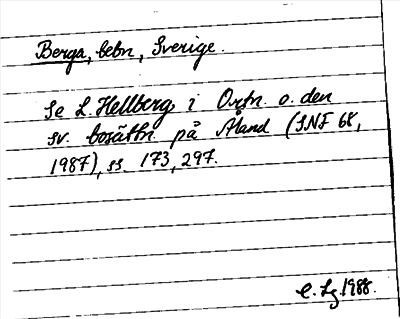 Berga, bebn, Sverige.
Se L. Hellberg i Ortn. o. den
sv. bosättn. på Åland (SNF 68,
1987), ss. 173, 297.
E. Lg 1988.